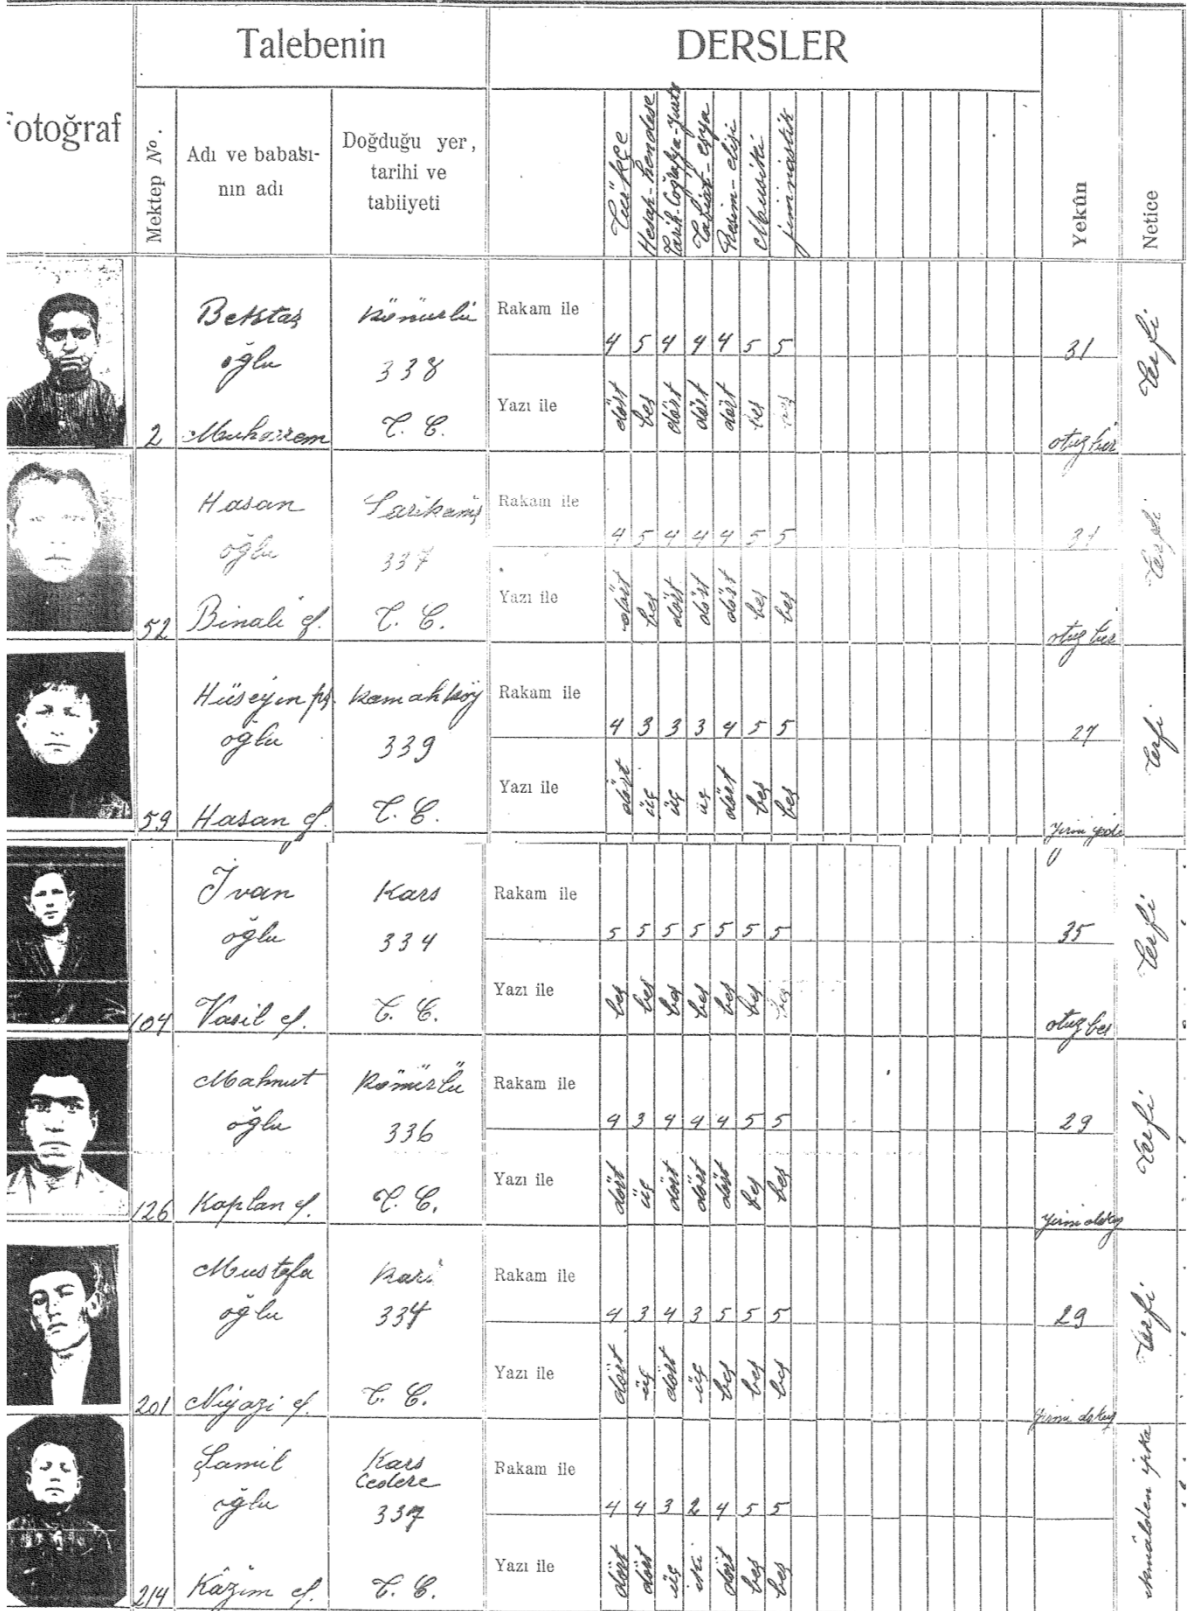 Talebenin
DERSLER
Fotoğraf
Mektep No.
Adı ve babası-
nın adı
Doğduğu yer,
tarihi ve
tabiiyeti
Türkçe
Hesap-hendese
Tarih-Coğrafya-Yurt
Tabiat-eşya
Resim-elişi
Musiki
jimnastik
Yekûn
Netice
2
Bektaş
oğlu
Muharrem
Kömürlü
338
T. C.
Rakam ile
4 5 4 4 4 5 5
Yazı ile
dört beş dört dört dört beş beş
31
otuz bir
terfi
52
Hasan
oğlu
Binali ef.
Sarıkamış
337
T. C.
Rakam ile
4 5 4 4 4 5 5
Yazı ile
dört beş dört dört dört beş beş
31
otuz bir
terfi
59
Hüseyin
oğlu
Hasan ef.
Kamahköy
339
T. C.
Rakam ile
4 3 3 3 4 5 5
Yazı ile
dört üç üç üç dört beş beş
27
yirmi yedi
terfi
104
İvan
oğlu
Vasil ef.
Kars
334
T. C.
Rakam ile
5 5 5 5 5 5 5
Yazı ile
beş beş beş beş beş beş beş
35
otuz beş
terfi
126
Mahmut
oğlu
Kaplan ef.
Kömürlü
336
T. C.
Rakam ile
4 3 4 4 4 5 5
Yazı ile
dört üç dört dört dört beş beş
29
yirmi dokuz
terfi
201
Mustafa
oğlu
Niyazi ef.
Kars
334
T. C.
Rakam ile
4 3 4 3 5 5 5
Yazı ile
dört üç dört üç beş beş beş
29
yirmi dokuz
terfi
214
Şamil
oğlu
Kâzım ef.
Kars
337
T. C.
Rakam ile
4 4 3 2 4 5 5
Yazı ile
dört dört üç iki dört beş beş
ikmâlden ipka